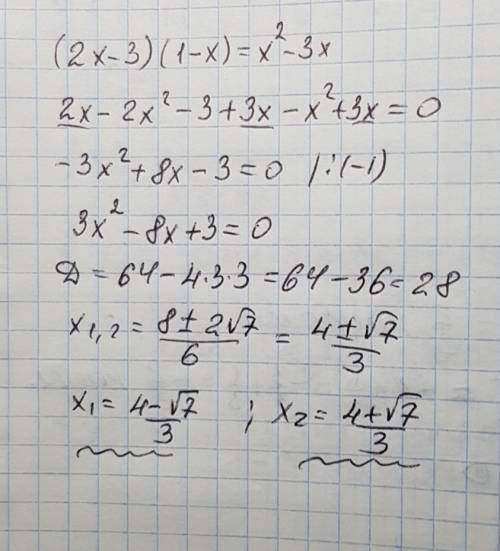 (2x-3)(1-x)=x²-3x
2x-2x²-3+3x-x²+3x=0
-3x²+8x-3=0 /:(-1)
3x²-8x+3=0
Д=64-4·3·3=64-36=28
x₁,₂=(8±2√7)/6=(4±√7)/3
x₁=(4-√7)/3 ; x₂=(4+√7)/3